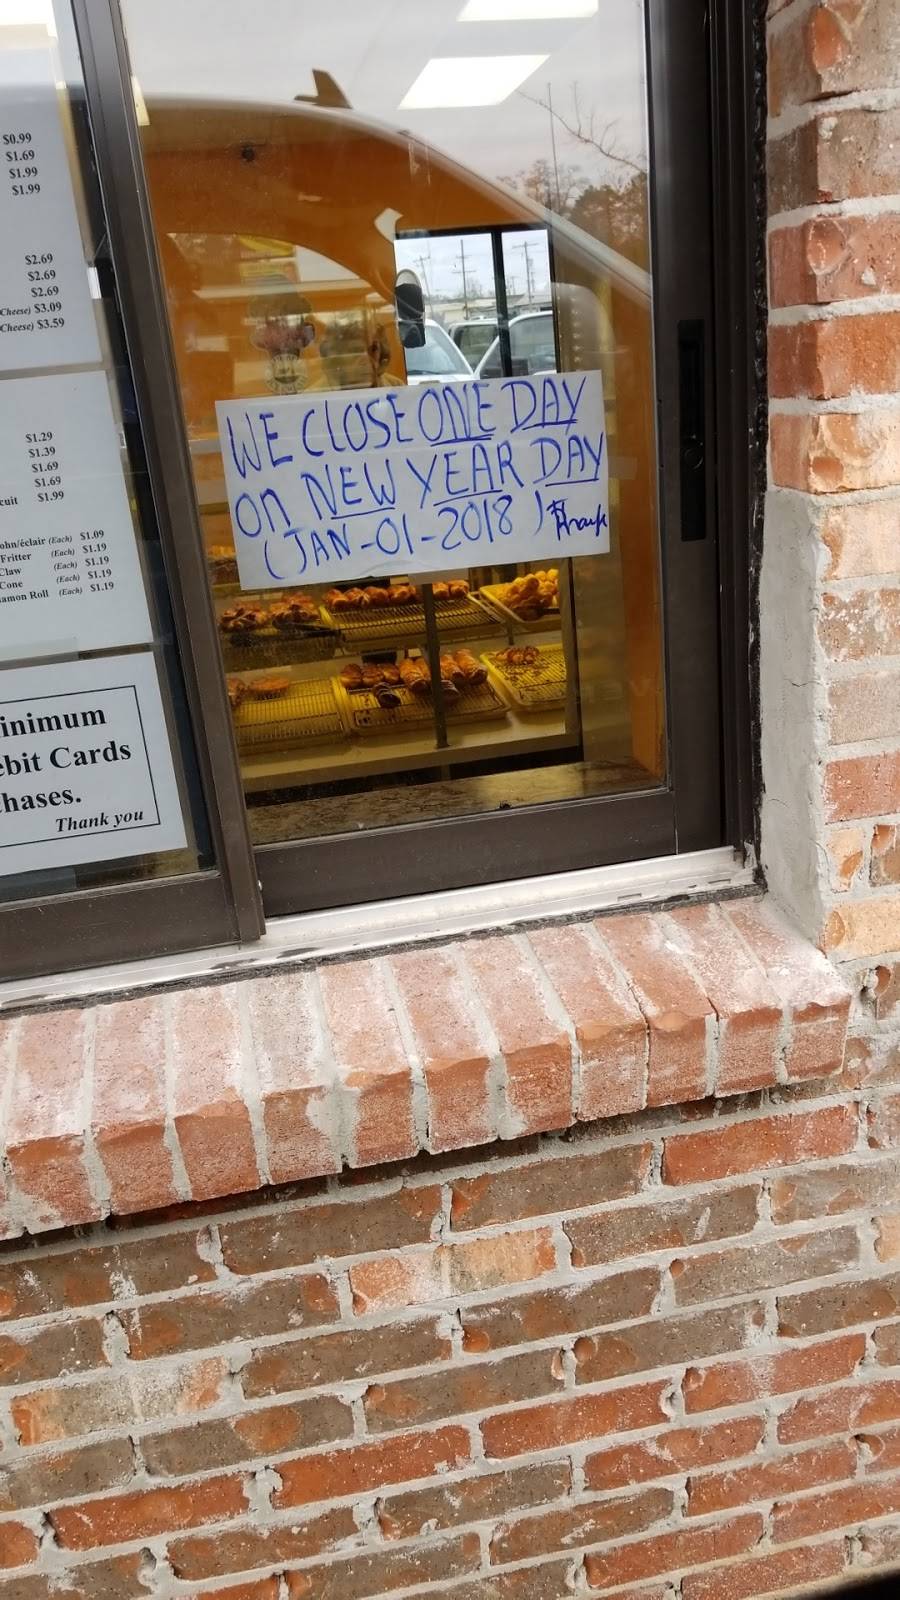 $0.99
$1.69
$1.99
$1.99
$2.69
$2.69
$2.69
Cheese) $3.09
Cheese) $3.59
$1.29
$1.39
$1.69
$1.69
cuit $1.99
ohn/éclair (Each) $1.09
Fritter (Each) $1.19
Claw (Each) $1.19
Cone (Each) $1.19
amon Roll (Each) $1.19
inimum
ebit Cards
hases.
Thank you
WE CLOSE ONE DAY
on NEW YEAR DAY
(JAN-01-2018)